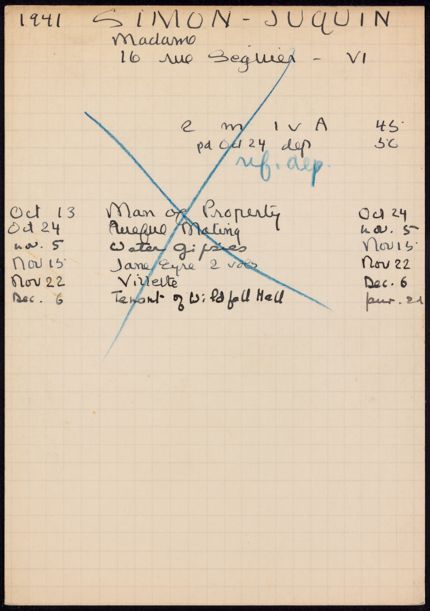 1941 SIMON - JUQUIN
Madame
16 rue Seguier - VI
2 m 1 v A 45
pd Oct 24 dep 50
ref. dep.
Oct 13 Man of Property Oct 24
Oct 24 Mating nov. 5
nov. 5 Water Gipsies Nov 15
Nov 15 Jane Eyre 2 vols Nov 22
Nov 22 Villette Dec. 6
Dec. 6 Tenant of Wildfell Hall janv. 21